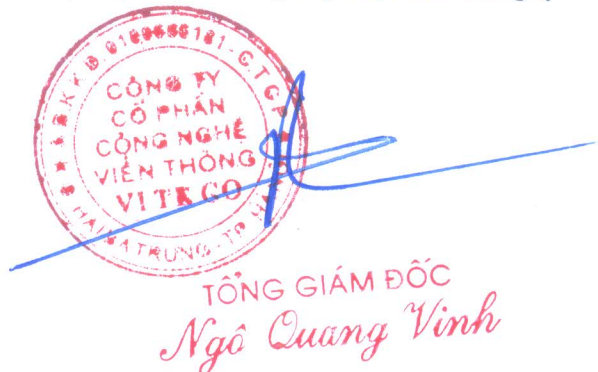 CÔNG TY
CỔ PHẦN
CÔNG NGHỆ
VIỄN THÔNG
VITECO
HAI BÀ TRƯNG - TP
TỔNG GIÁM ĐỐC
Ngô Quang Vinh